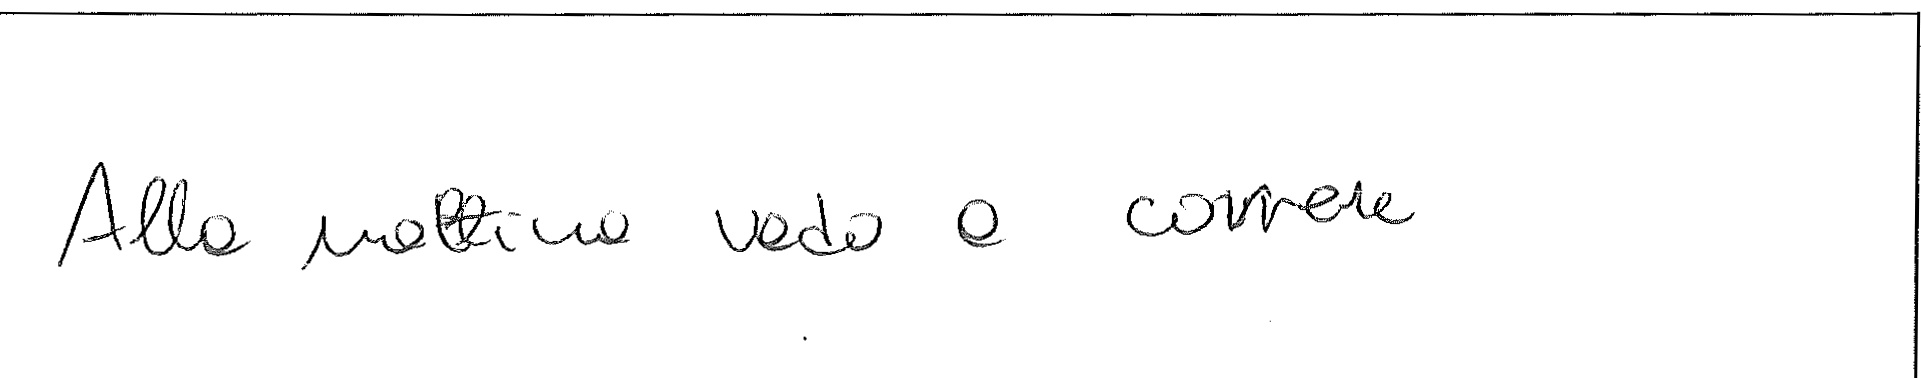 Alla mattina vado a correre